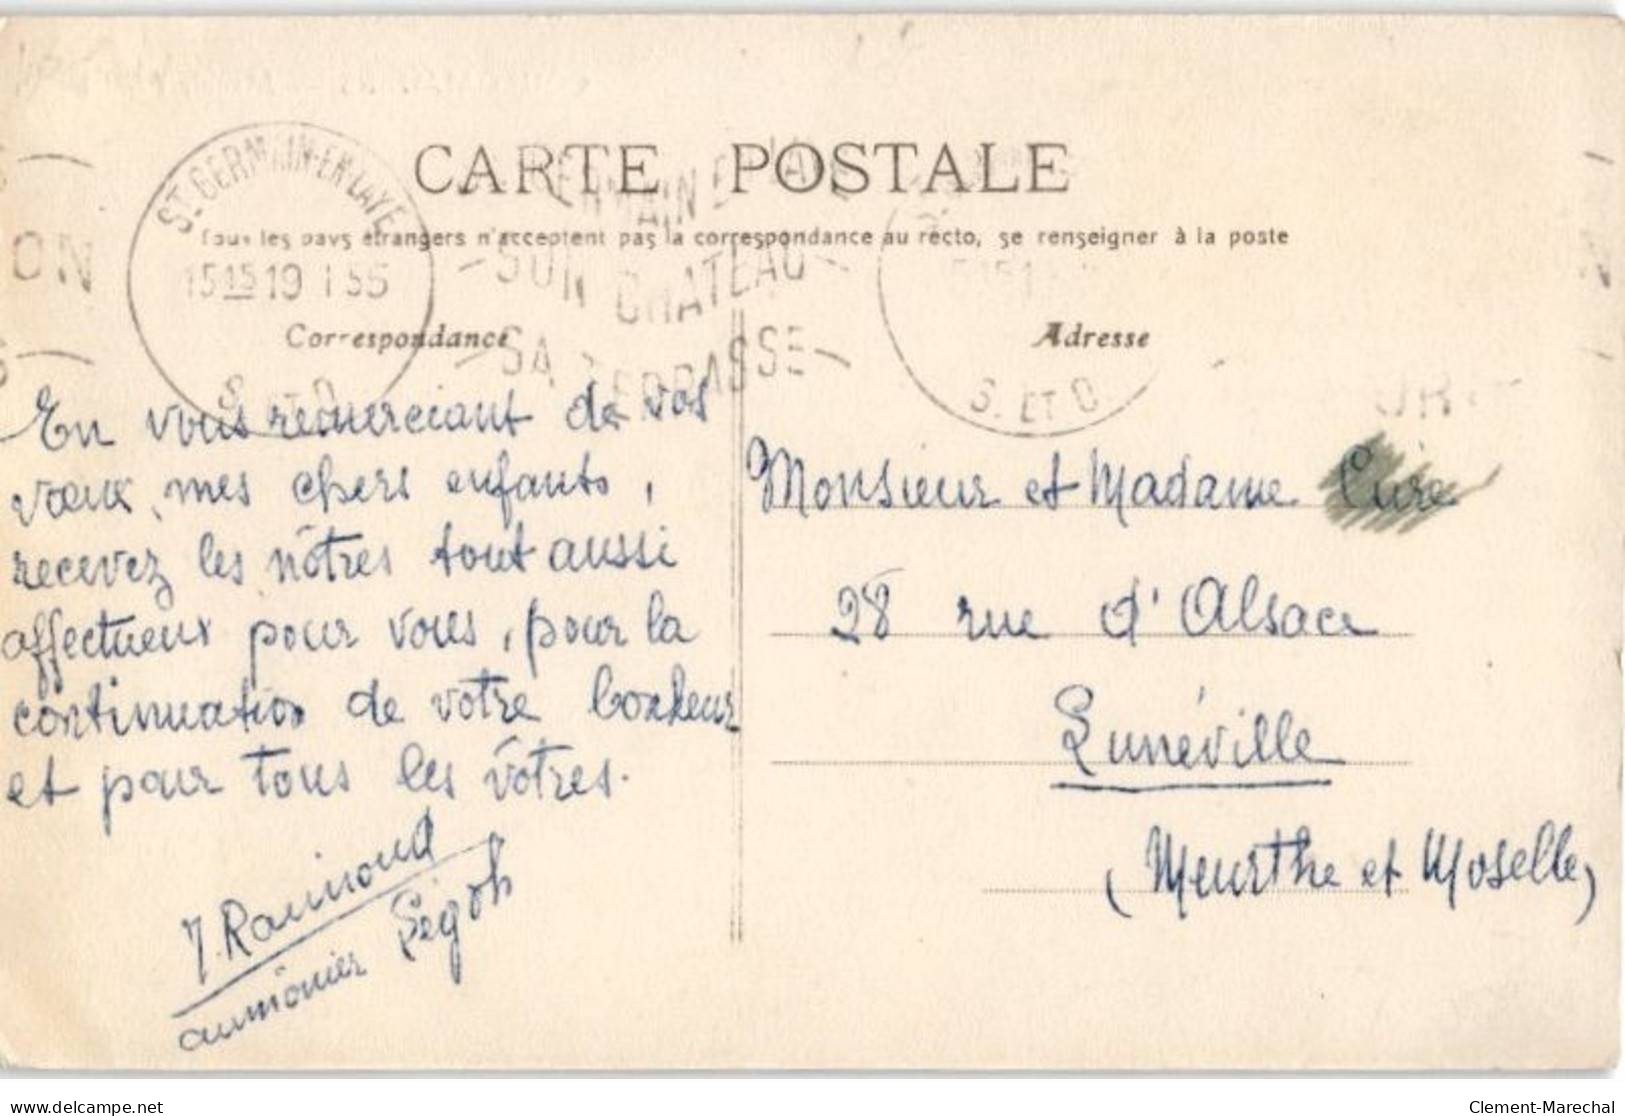 CARTE POSTALE
Tous les pays étrangers n'acceptent pas la correspondance au recto, se renseigner à la poste
ST GERMAIN-EN-LAYE
15 15 19 1 55
S. ET O.
GERMAIN EN LAYE
SON CHATEAU
SA TERRASSE
S. ET O.
ON
Correspondance
Adresse
En vous remerciant de vos
vœux, mes chers enfants,
recevez les nôtres tout aussi
affectueux pour vous, pour la
continuation de votre bonheur
et pour tous les vôtres.
J. Raimond
aumônier Ségoh
Monsieur et Madame Curé
28 rue d'Alsace
Lunéville
(Meurthe et Moselle)
delcampe.net
Clement-Marechal